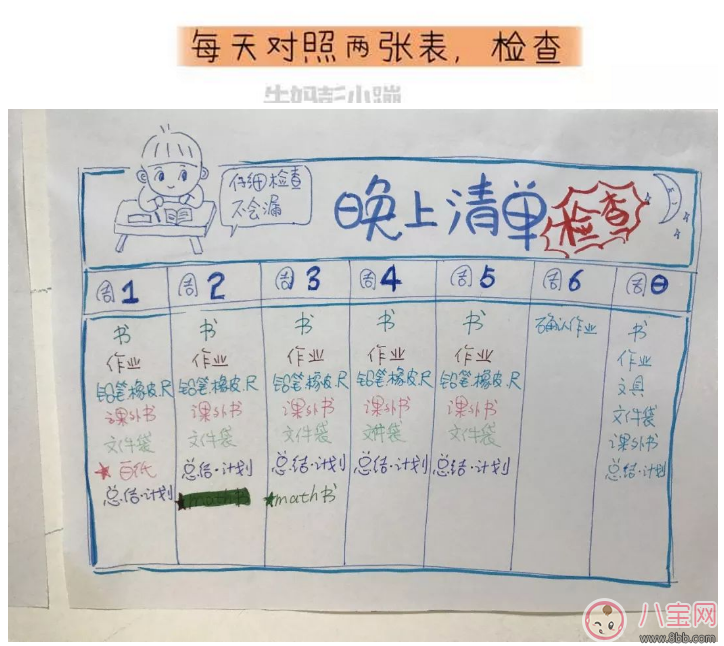 每天对照两张表，检查
牛妈彭小蹦
仔细检查
不会漏
晚上清单
检查
周1 周2 周3 周4 周5 周6 周日
书
作业
铅笔橡皮尺
课外书
文件袋
★百纸
总结·计划
书
作业
铅笔橡皮尺
课外书
文件袋
总结·计划
书
作业
铅笔橡皮尺
课外书
文件袋
总结·计划
★math书
书
作业
铅笔橡皮尺
课外书
文件袋
总结·计划
书
作业
铅笔橡皮尺
课外书
文件袋
总结·计划
确认作业
书
作业
文具
文件袋
课外书
总结·计划
八宝网
www.8bb.com